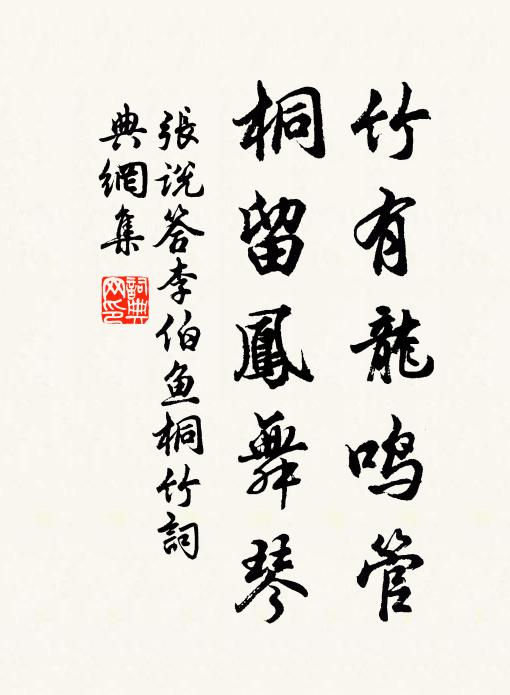 竹有龍鳴管
桐留鳳舞琴
張說答李伯鱼桐竹詞
典網集
詞典
网印